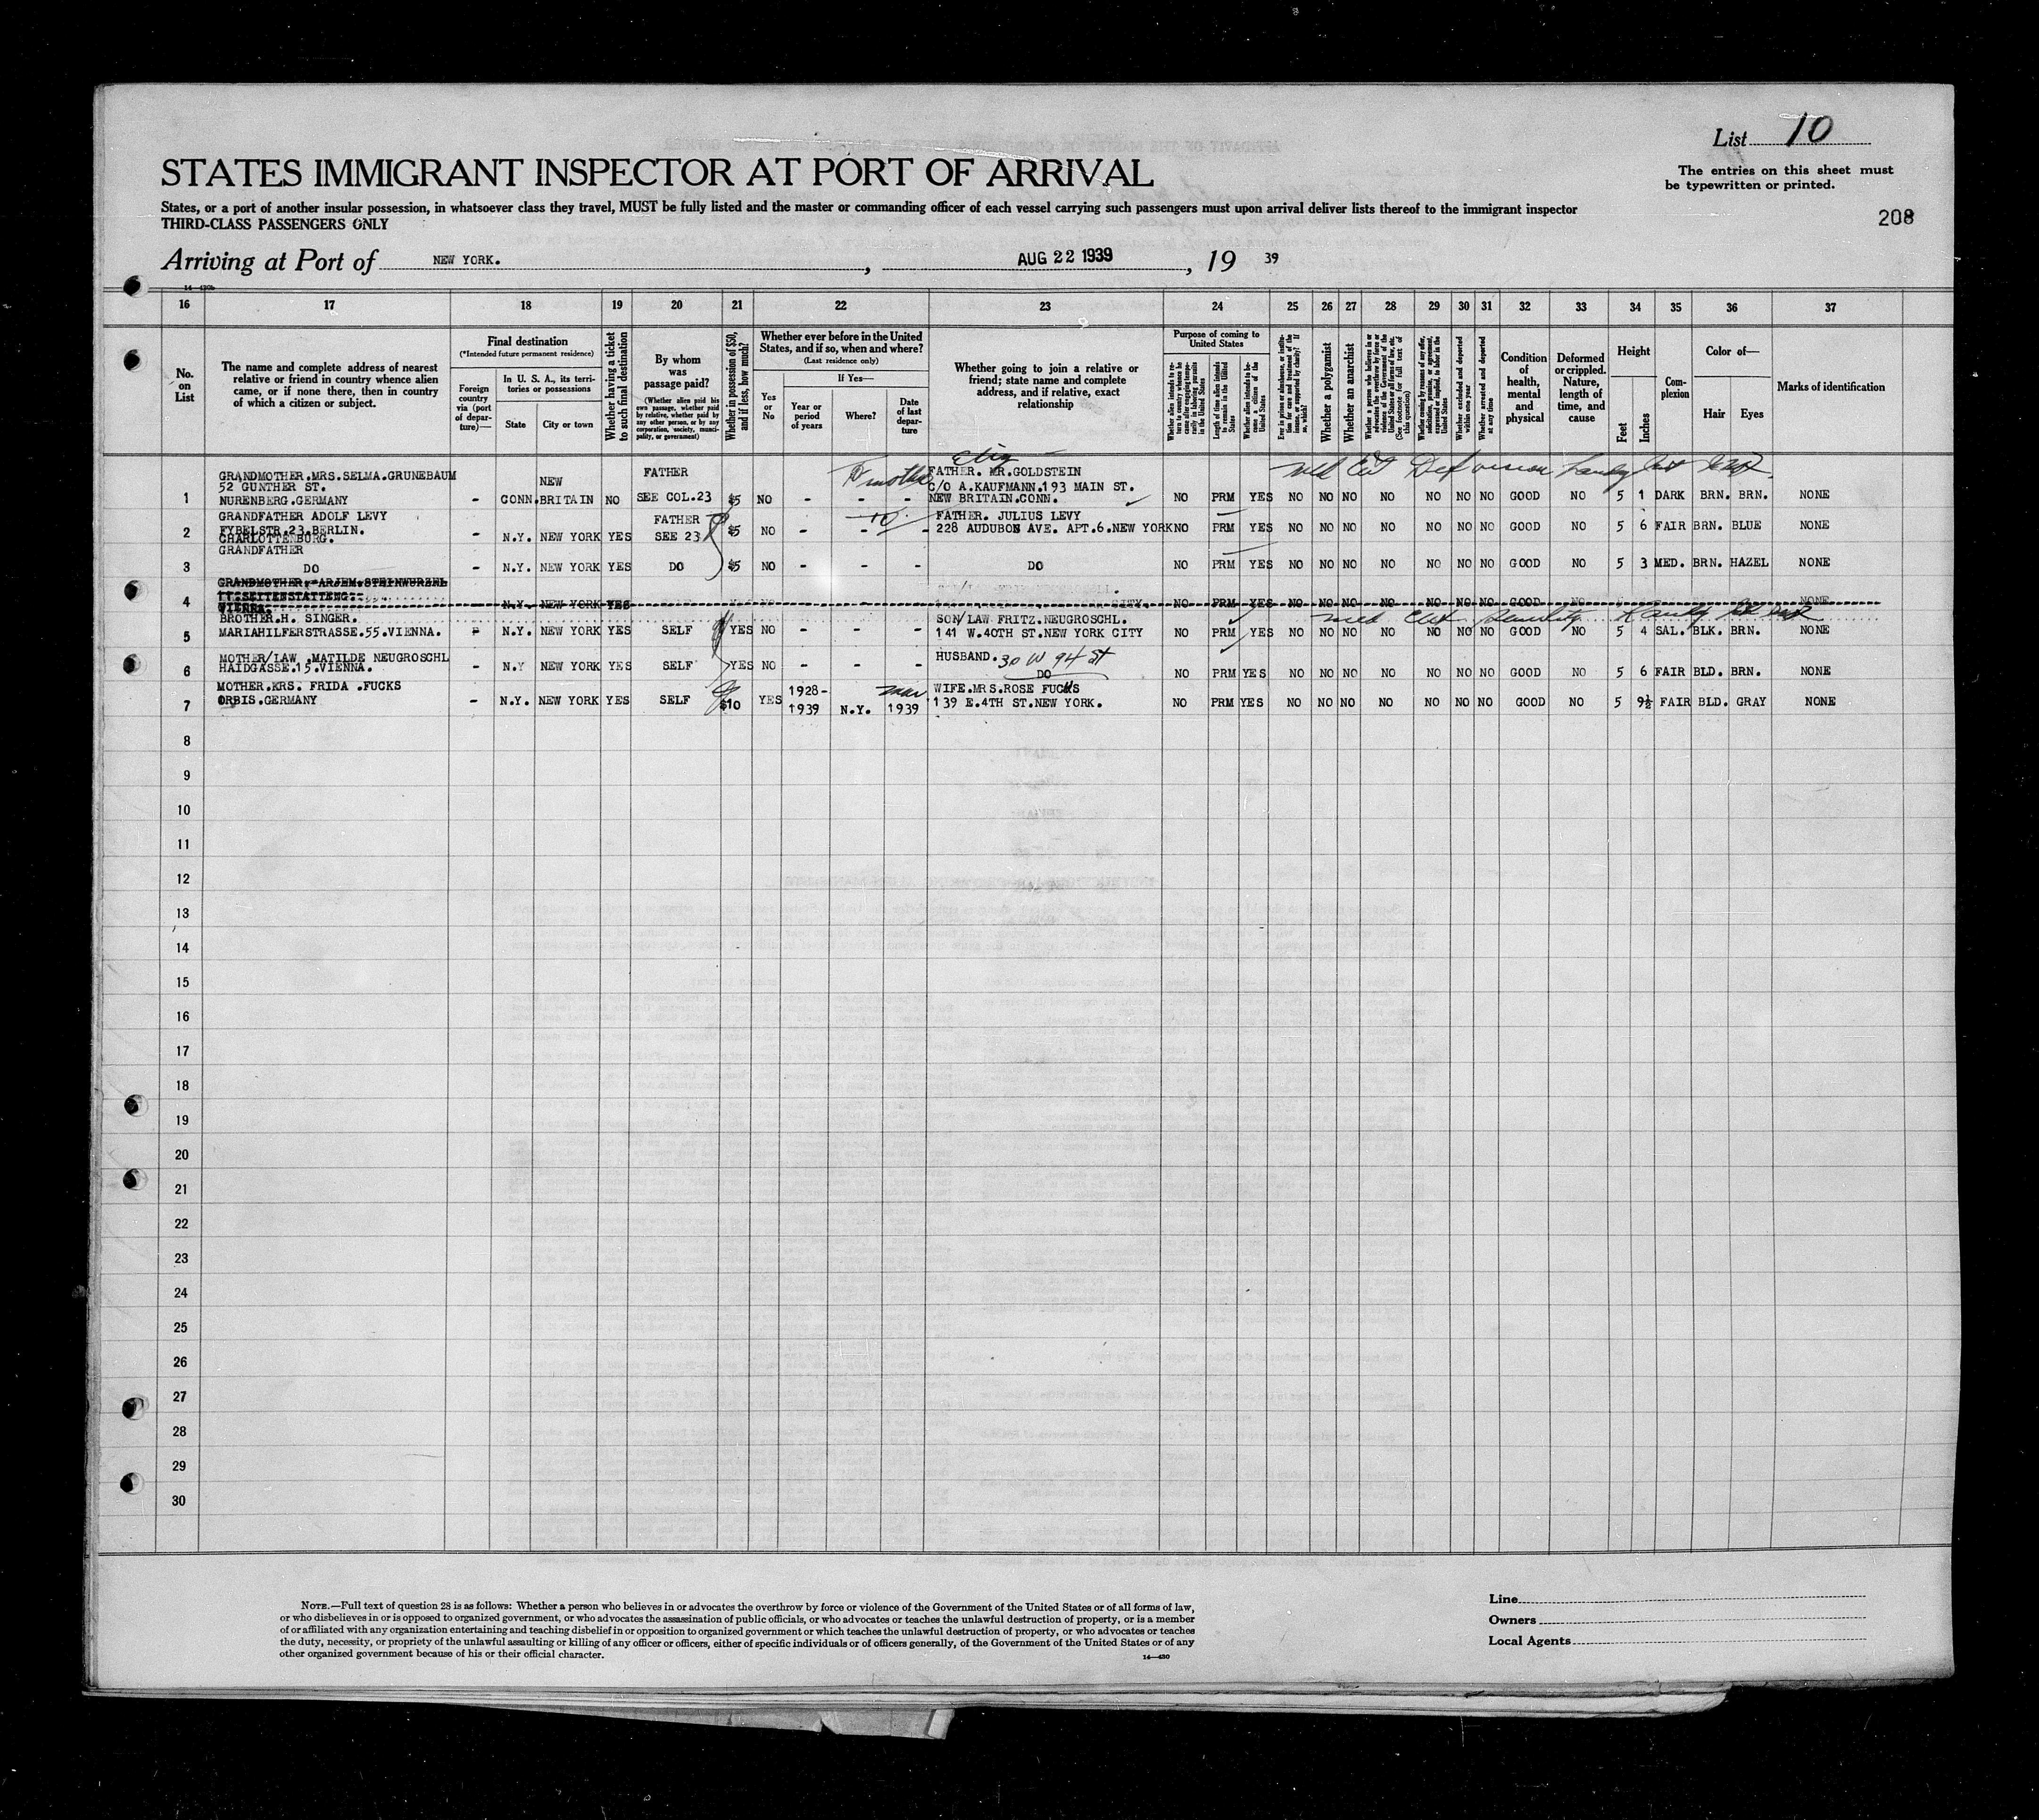 List 10
STATES IMMIGRANT INSPECTOR AT PORT OF ARRIVAL
The entries on this sheet must
be typewritten or printed.
States, or a port of another insular possession, in whatsoever class they travel, MUST be fully listed and the master or commanding officer of each vessel carrying such passengers must upon arrival deliver lists thereof to the immigrant inspector
THIRD-CLASS PASSENGERS ONLY
208
Arriving at Port of NEW YORK. , AUG 22 1939 , 19 39
14—430b
16 17 18 19 20 21 22 23 24 25 26 27 28 29 30 31 32 33 34 35 36 37
No. on List
The name and complete address of nearest relative or friend in country whence alien came, or if none there, then in country of which a citizen or subject.
Final destination
(*Intended future permanent residence)
Foreign country via (port of departure)—
In U. S. A., its territories or possessions
State
City or town
Whether having a ticket to such final destination
By whom was passage paid?
(Whether alien paid his own passage, whether paid by relative, whether paid by any other person, or by any corporation, society, municipality, or government)
Whether in possession of $50, and if less, how much?
Whether ever before in the United States, and if so, when and where?
(Last residence only)
If Yes—
Yes or No
Year or period of years
Where?
Date of last departure
Whether going to join a relative or friend; state name and complete address, and if relative, exact relationship
Purpose of coming to United States
Length of time alien intends to remain in the United States
Whether alien intends to become a citizen of the United States
Whether a polygamist
Whether an anarchist
Whether excluded and deported within one year
Whether arrested and deported at any time
Condition of health, mental and physical
Deformed or crippled. Nature, length of time, and cause
Height
Feet
Inches
Complexion
Color of—
Hair
Eyes
Marks of identification
GRANDMOTHER.MRS.SELMA.GRUNEBAUM FATHER FATHER. MR.GOLDSTEIN
52 GUNTHER ST. NEW C/O A.KAUFMANN.193 MAIN ST.
1 NURENBERG.GERMANY - CONN. BRITAIN NO SEE COL.23 $5 NO - - - NEW BRITAIN.CONN. NO PRM YES NO NO NO NO NO NO NO GOOD NO 5 1 DARK BRN. BRN. NONE
GRANDFATHER ADOLF LEVY FATHER FATHER. JULIUS LEVY
2 FYBELSTR.23.BERLIN. - N.Y. NEW YORK YES SEE 23 $5 NO - - - 228 AUDUBON AVE. APT.6.NEW YORK NO PRM YES NO NO NO NO NO NO NO GOOD NO 5 6 FAIR BRN. BLUE NONE
CHARLOTTENBURG.
GRANDFATHER
3 DO - N.Y. NEW YORK YES DO $5 NO - - - DO NO PRM YES NO NO NO NO NO NO NO GOOD NO 5 3 MED. BRN. HAZEL NONE
GRANDMOTHER. STEINWURZEL
4 N.Y. NEW YORK YES CITY. NO PRM YES NO NO NO NO NO NO NO GOOD NO NONE
VIENNA.
BROTHER.H. SINGER. SON/LAW FRITZ.NEUGROSCHL.
5 MARIAHILFERSTRASSE.55.VIENNA. - N.Y. NEW YORK YES SELF YES NO - - - 141 W.40TH ST.NEW YORK CITY NO PRM YES NO NO NO NO NO NO NO GOOD NO 5 4 SAL. BLK. BRN. NONE
MOTHER/LAW .MATILDE NEUGROSCHL HUSBAND. 30 W 94 St
6 HAIDGASSE.15.VIENNA. - N.Y NEW YORK YES SELF YES NO - - - DO NO PRM YES NO NO NO NO NO NO NO GOOD NO 5 6 FAIR BLD. BRN. NONE
MOTHER.MRS. FRIDA .FUCKS 1928- WIFE.MRS.ROSE FUCHS
7 ORBIS.GERMANY - N.Y. NEW YORK YES SELF $10 YES 1939 N.Y. 1939 139 E.4TH ST.NEW YORK. NO PRM YES NO NO NO NO NO NO NO GOOD NO 5 9½ FAIR BLD. GRAY NONE
8
9
10
11
12
13
14
15
16
17
18
19
20
21
22
23
24
25
26
27
28
29
30
NOTE.—Full text of question 28 is as follows: Whether a person who believes in or advocates the overthrow by force or violence of the Government of the United States or of all forms of law,
or who disbelieves in or is opposed to organized government, or who advocates the assassination of public officials, or who advocates or teaches the unlawful destruction of property, or is a member
of or affiliated with any organization entertaining and teaching disbelief in or opposition to organized government or which teaches the unlawful destruction of property, or who advocates or teaches
the duty, necessity, or propriety of the unlawful assaulting or killing of any officer or officers, either of specific individuals or of officers generally, of the Government of the United States or of any
other organized government because of his or their official character.
14—430
Line
Owners
Local Agents